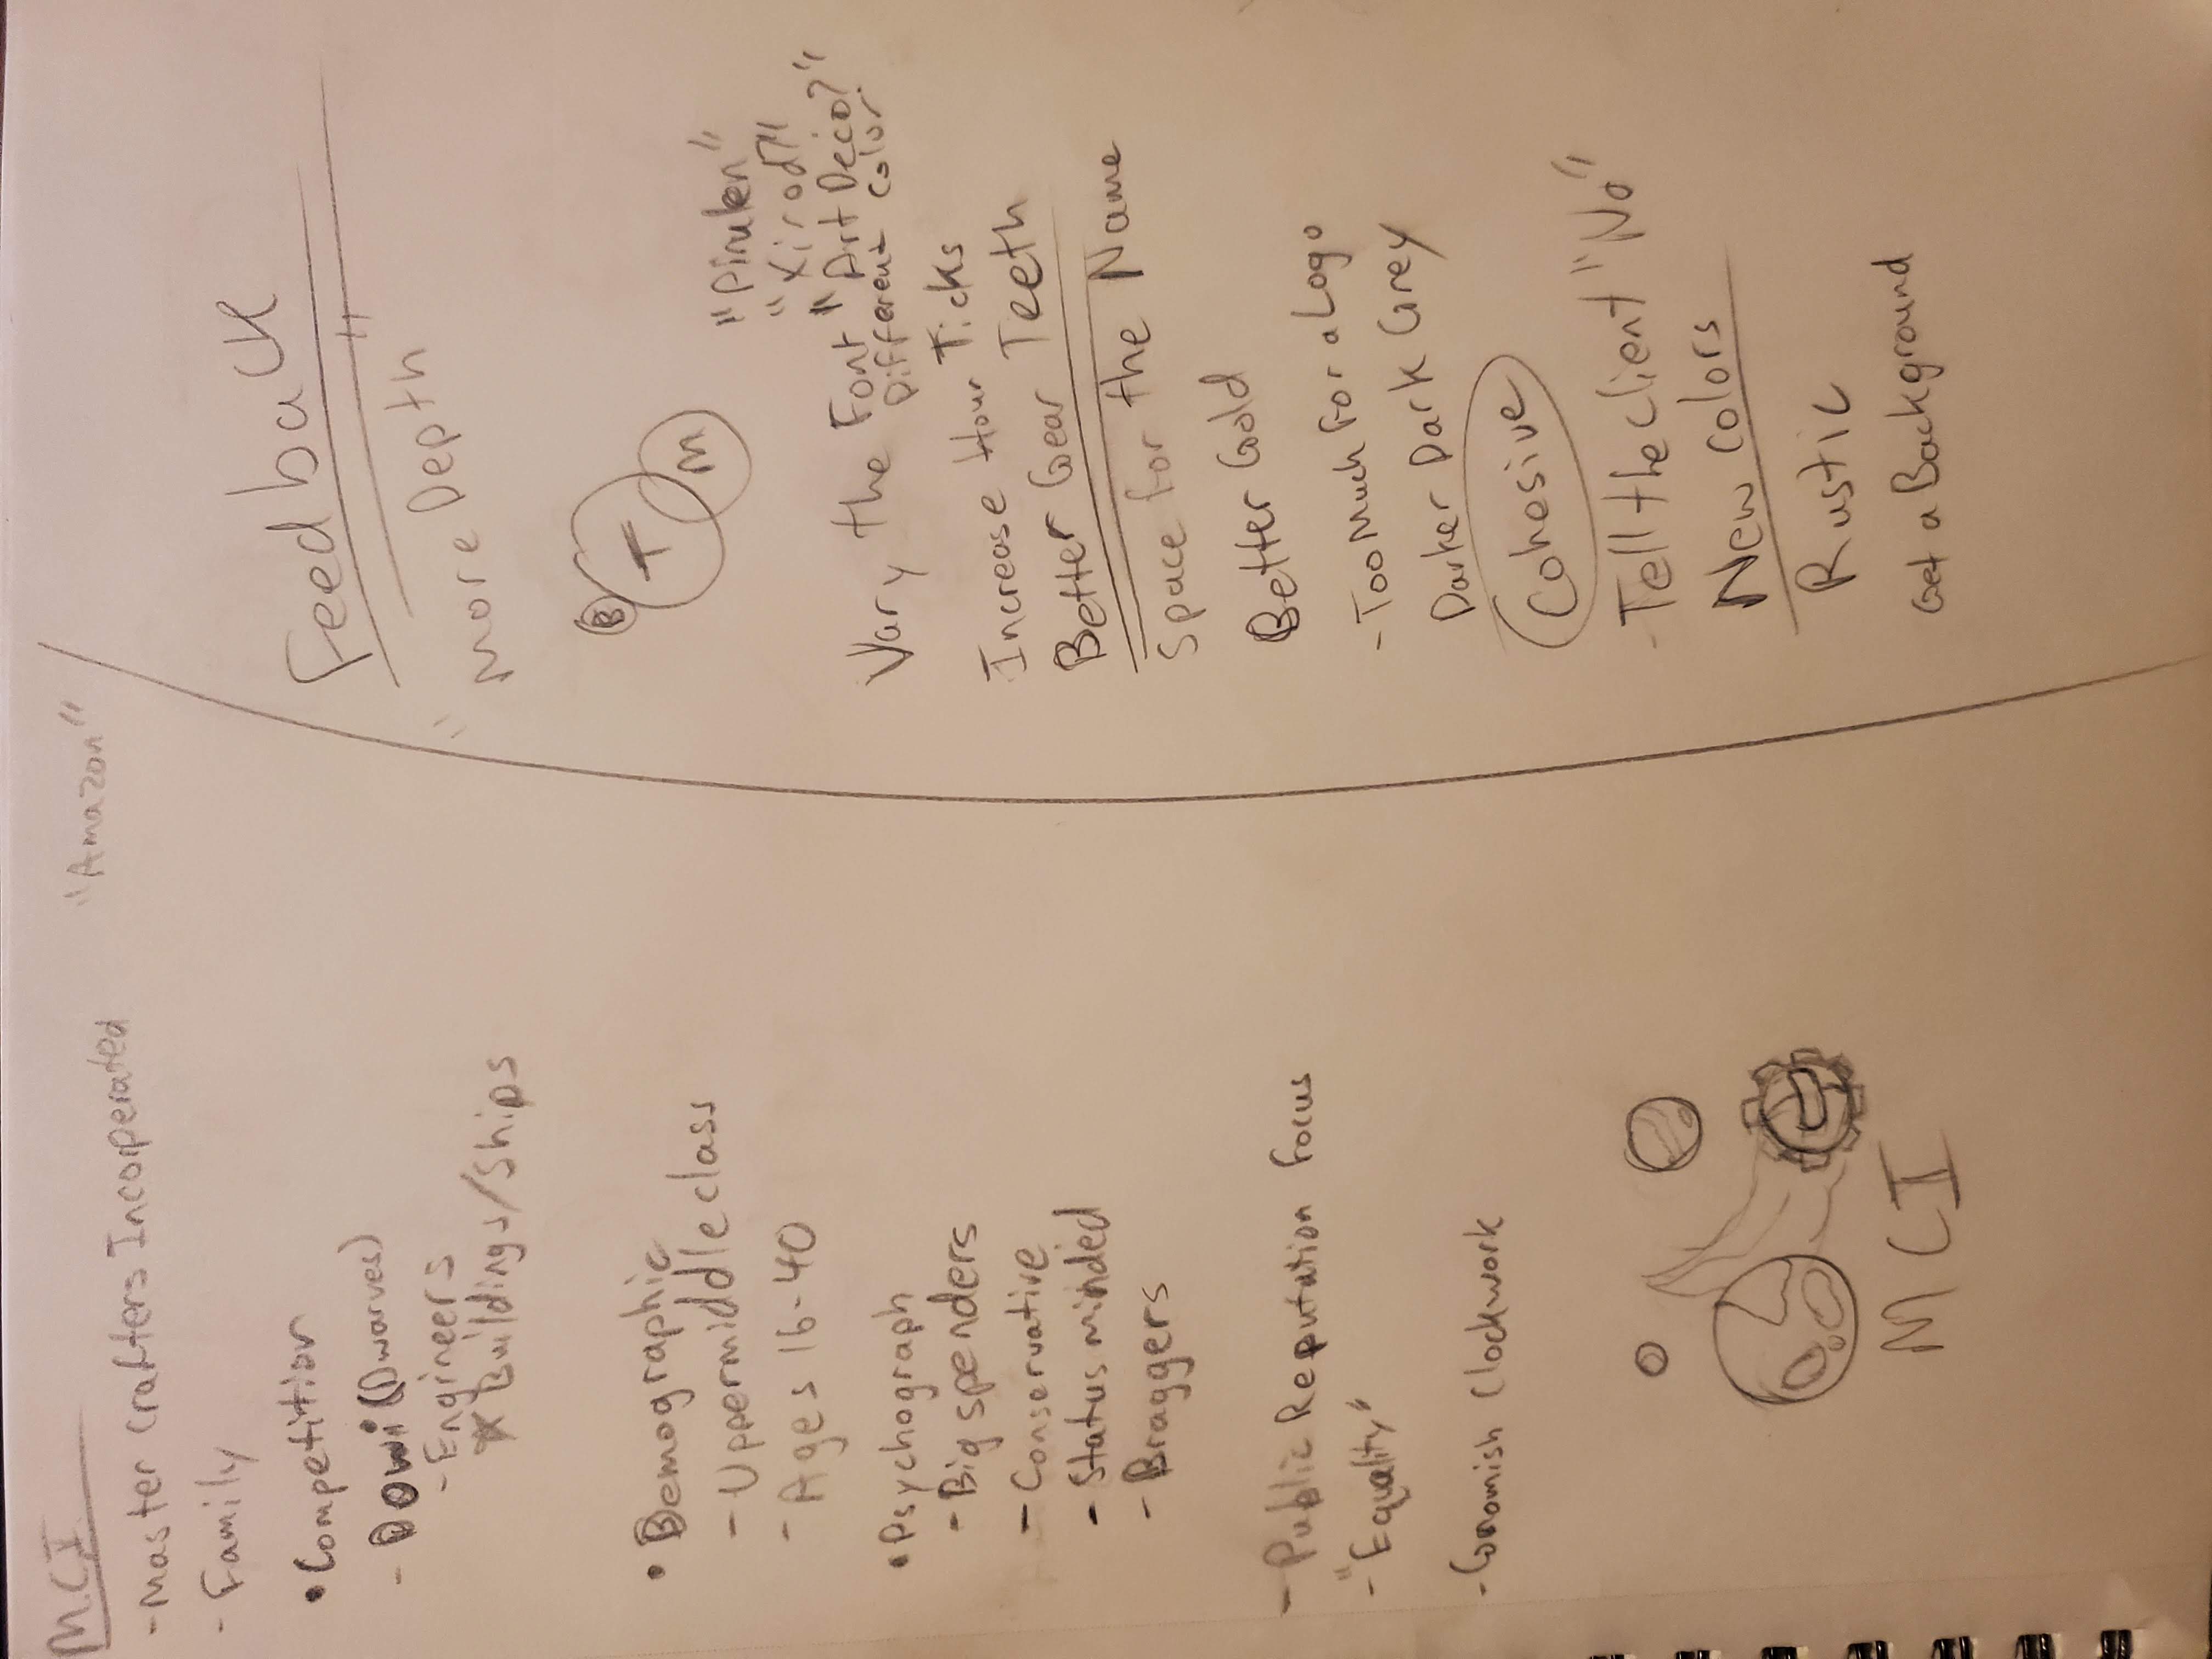 M.C.I.
"Amazon"
- Master Crafters Incorperated
- Family
• Competition
- Dowi (Dwarves)
- Engineers
* Buildings/Ships
• Demographic
- Uppermiddle class
- Ages 16-40
• Psychograph
- Big spenders
- Conservative
- Status minded
- Braggers
- Public Reputation Focus
- "Equality"
- Gnomish Clockwork
MCI
Feedback
"More Depth"
B
T
M
"Pirulen"
"Xirod?"
Vary the Font "Art Deco?"
Different Color
Increase Hour Ticks
Better Gear Teeth
Space for the Name
Better Gold
- Too Much For a Logo
Darker Dark Grey
Cohesive
- Tell the client "No"
New Colors
Rustic
Get a Background